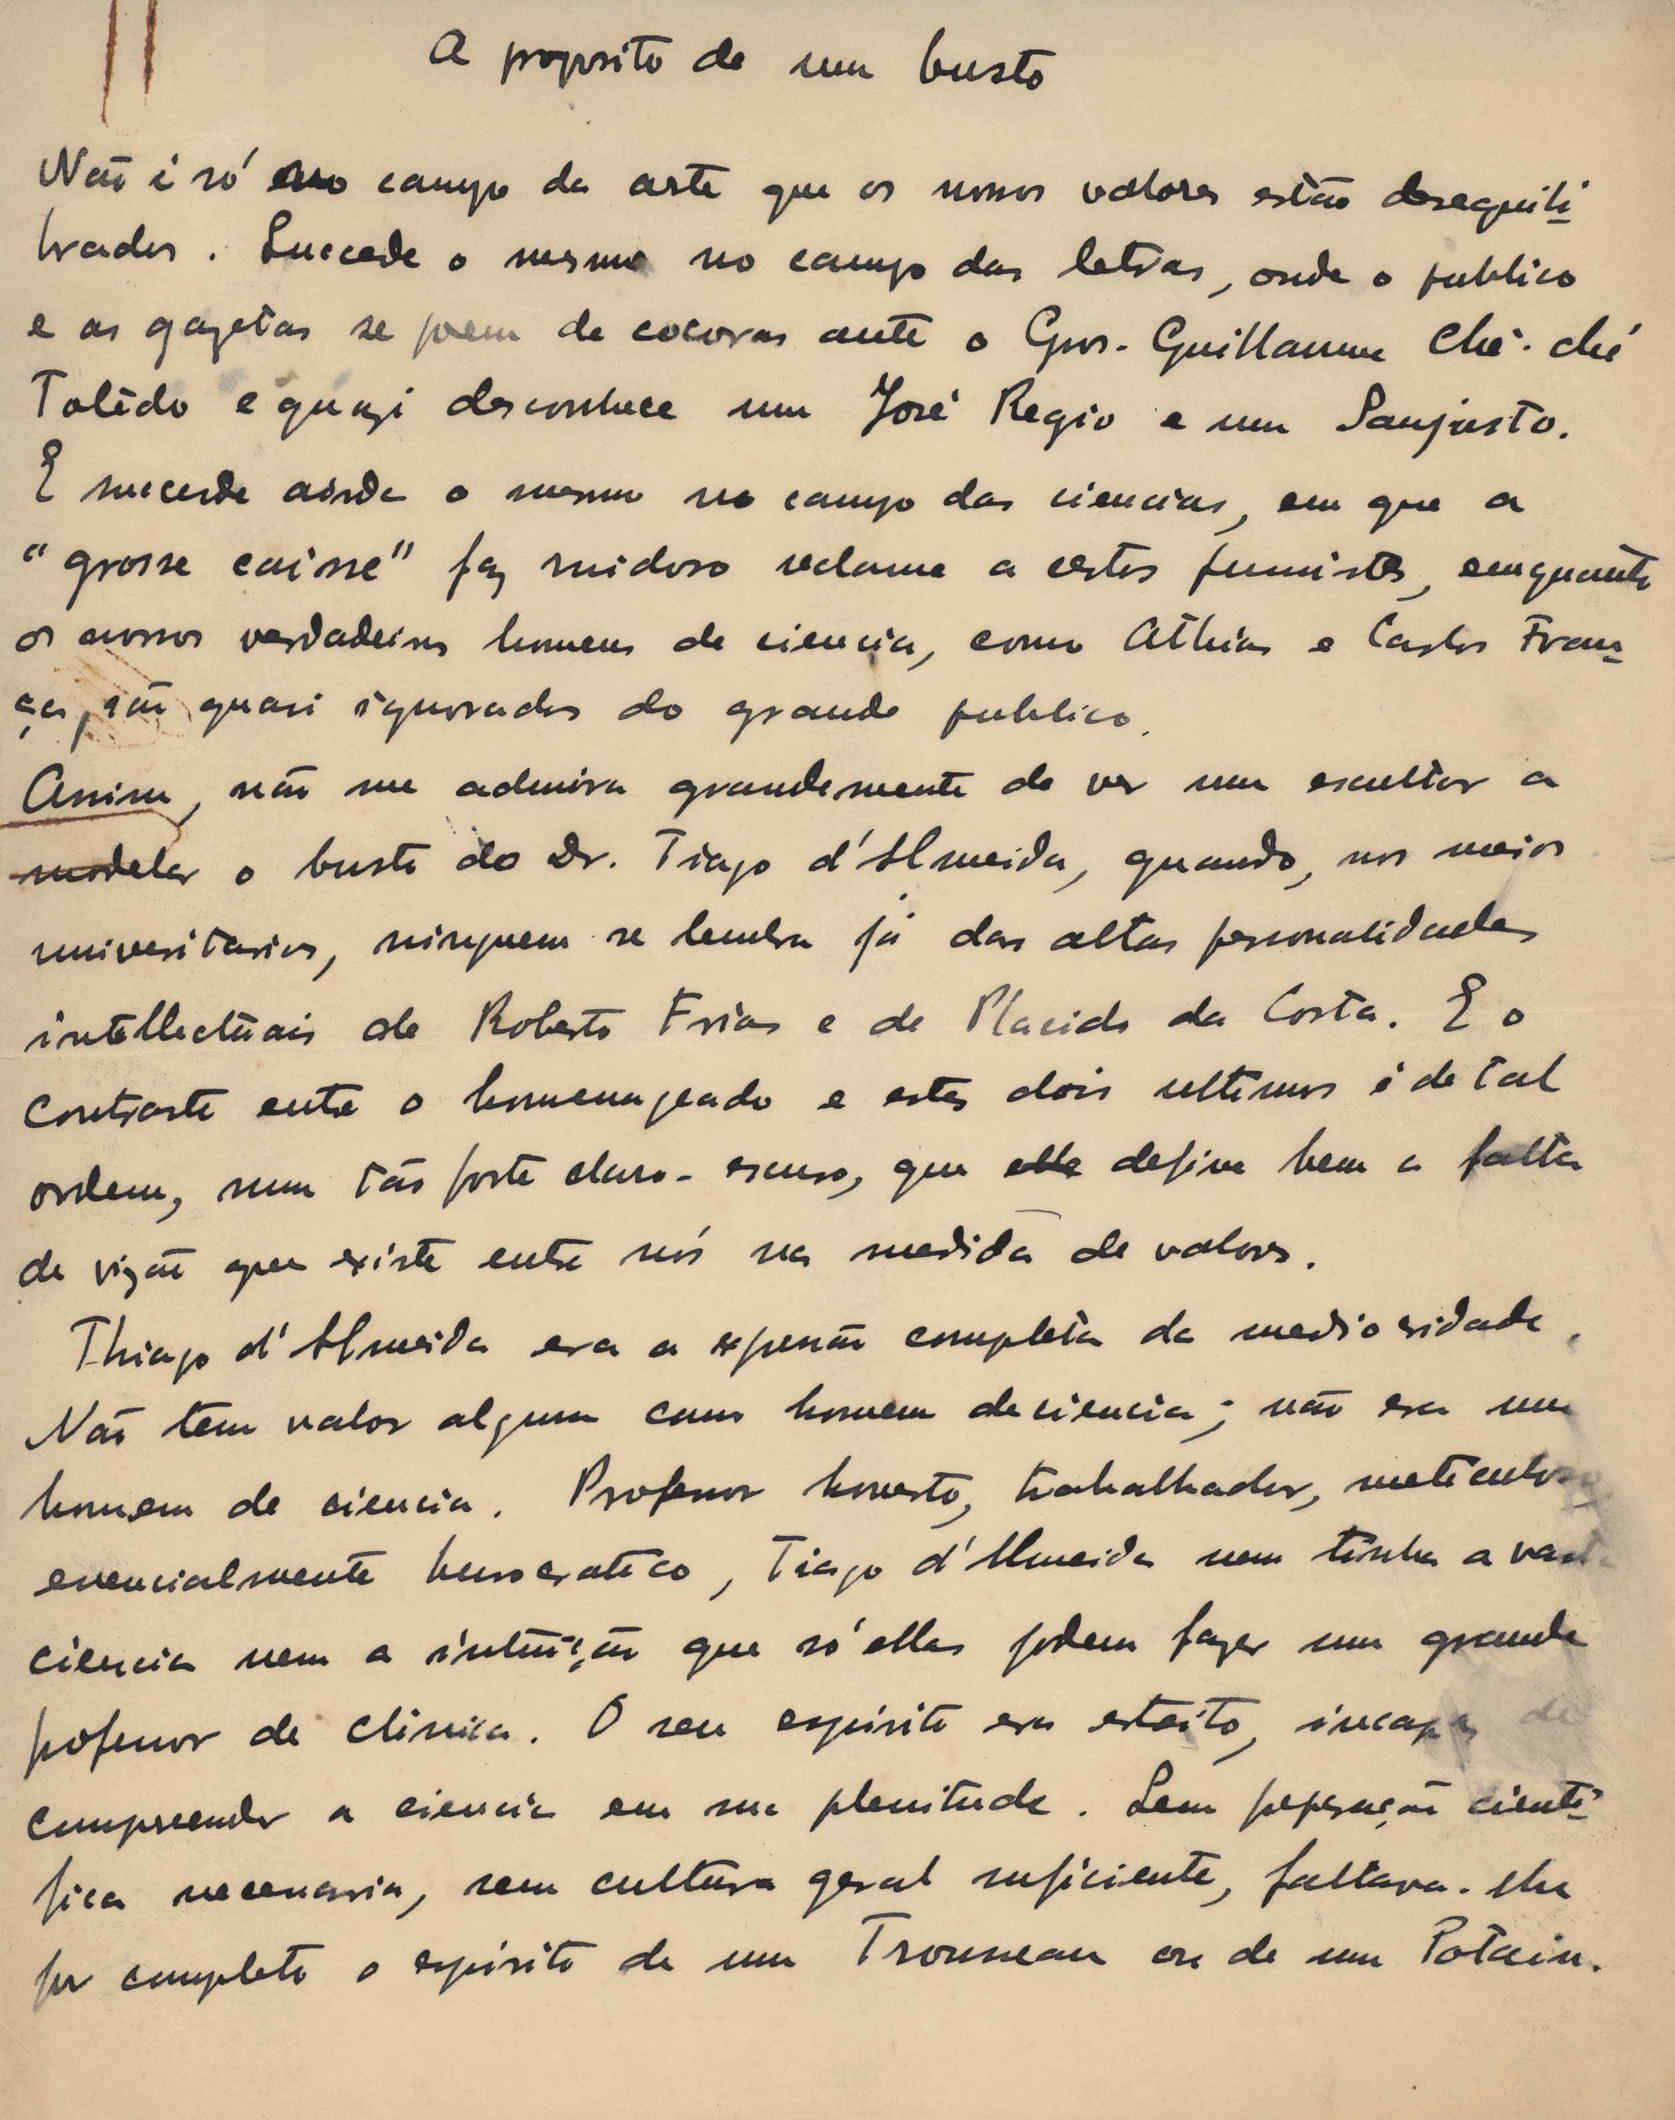 A proposito de um busto
Não é só no campo da arte que os nossos valores estão desequili-
brados. Succede o mesmo no campo das letras, onde o publico
e as gazetas se poem de cocoras ante o Guillaume Ché-ché
Tolêdo e quazi desconhece um José Regio e um Sanjusto.
E succede ainda o mesmo no campo das ciencias, em que a
"grosse caisse" faz ruidoso reclame a certos fumistes, emquanto
os nossos verdadeiros homens de ciencia, como Athias e Carlos Fran-
ça, são quasi ignorados do grande publico.
Assim, não me admira grandemente de ver um escultor a
modelar o busto do Dr. Tiago d'Almeida, quando, nos meios
univesitarios, ninguem se lembra já das altas personalidades
intellectuais de Roberto Frias e de Placido da Costa. E o
contraste entre o homenageado e estes dois ultimos é de tal
ordem, num tão forte claro-escuro, que elle define bem a falta
de vizão que existe entre nós na medida de valores.
Thiago d'Almeida era a expressão completa da mediocridade.
Não tem valor algum como homem de ciencia; não era um
homem de ciencia. Professor honesto, trabalhador, meticuloso,
essencialmente burocratico, Tiago d'Almeida nem tinha a vasta
ciencia nem a intuição que só ellas podem fazer um grande
professor de clinica. O seu espirito era estreito, incapaz de
compreender a ciencia em sua plenitude. Sem preparação cienti-
fica necessaria, sem cultura geral suficiente, faltava-lhe
por completo o espirito de um Trousseau ou de um Potain.